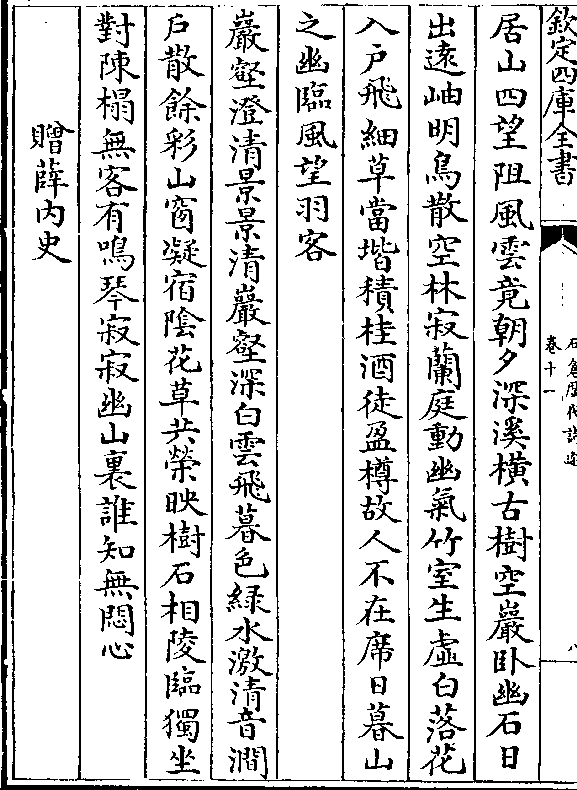 欽定四庫全書
石倉歷代詩選
卷十一
八
居山四望阻風雲竟朝夕深溪橫古樹空巖卧幽石日
出遠岫明鳥散空林寂蘭庭動幽氣竹室生虛白落花
入户飛細草當堦積桂酒徒盈樽故人不在席日暮山
之幽臨風望羽客
巖壑澄清景景清巖壑深白雲飛暮色緑水激清音澗
户散餘彩山窗凝宿陰花草共榮映樹石相陵臨獨坐
對陳榻無客有鳴琴寂寂幽山裏誰知無悶心
贈薛内史